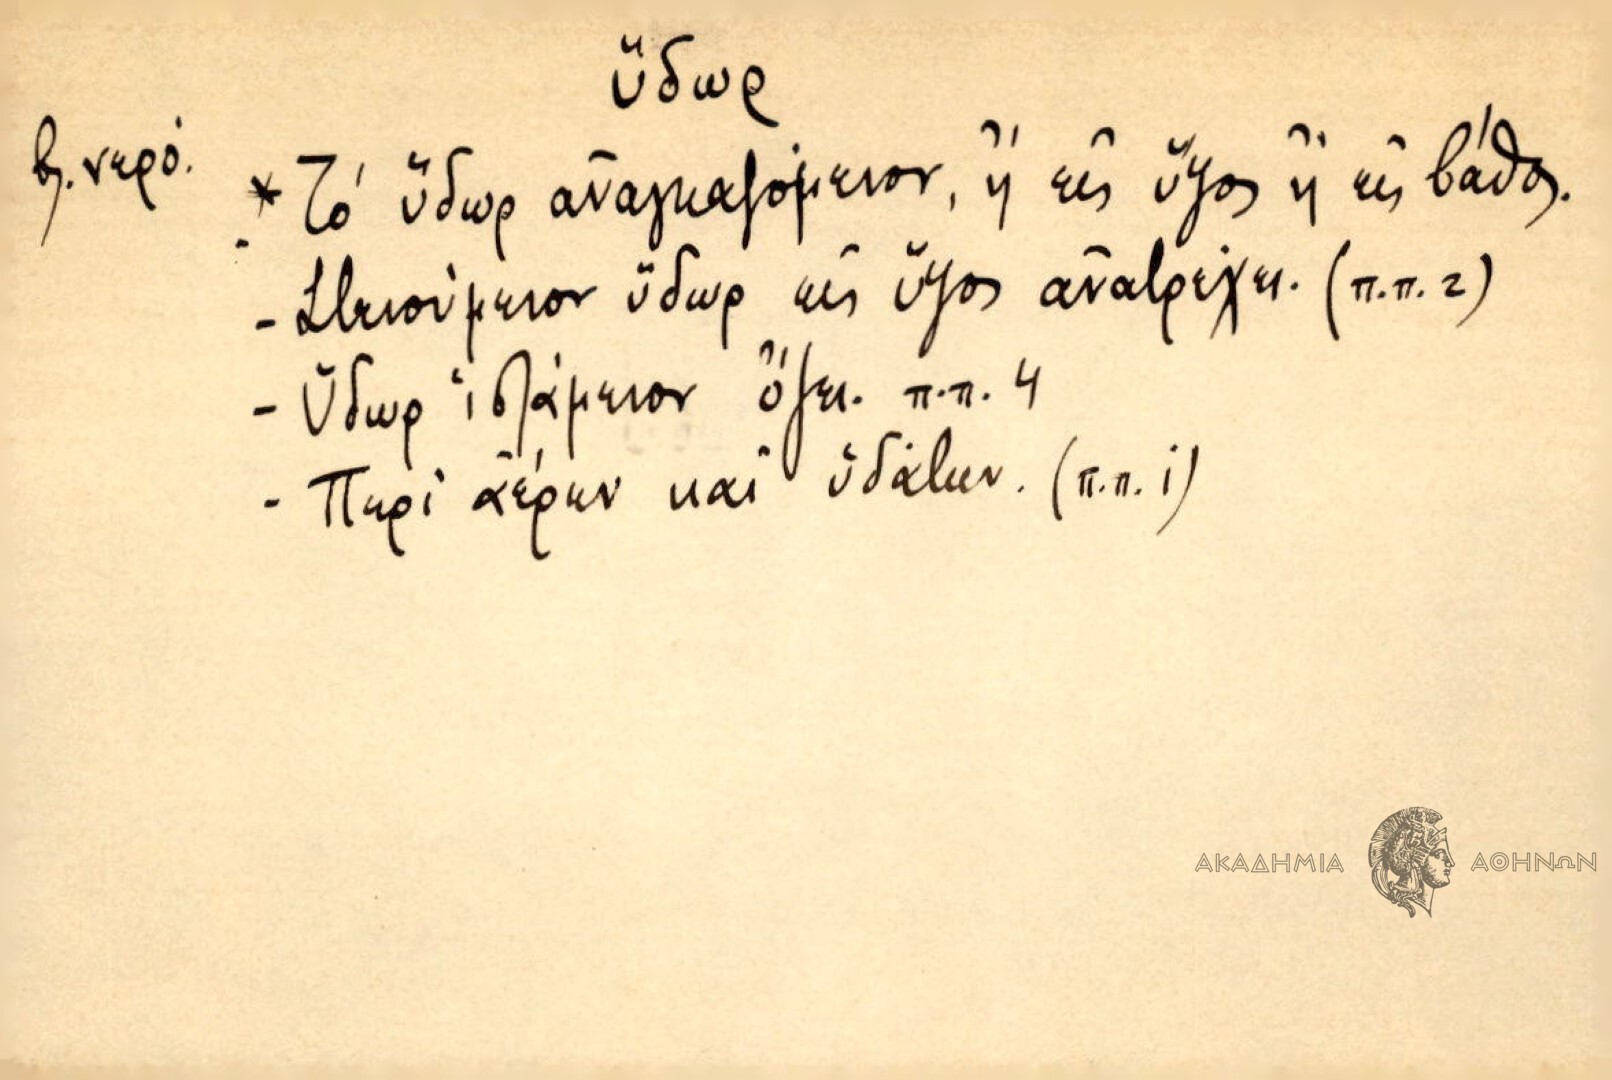 ὕδωρ
βλ. νερό.
* Τό ὕδωρ ἀναγκαζόμενον, ἤ εἰς ὕψος ἤ εἰς βάθος.
- Στενούμενον ὕδωρ εἰς ὕψος ἀνατρέχει. (π.π. 2)
- Ὕδωρ ἱστάμενον ὄζει. π.π. 4
- Περί ἀέρων καί ὑδάτων. (π.π. 1)
ΑΚΑΔΗΜΙΑ ΑΘΗΝΩΝ